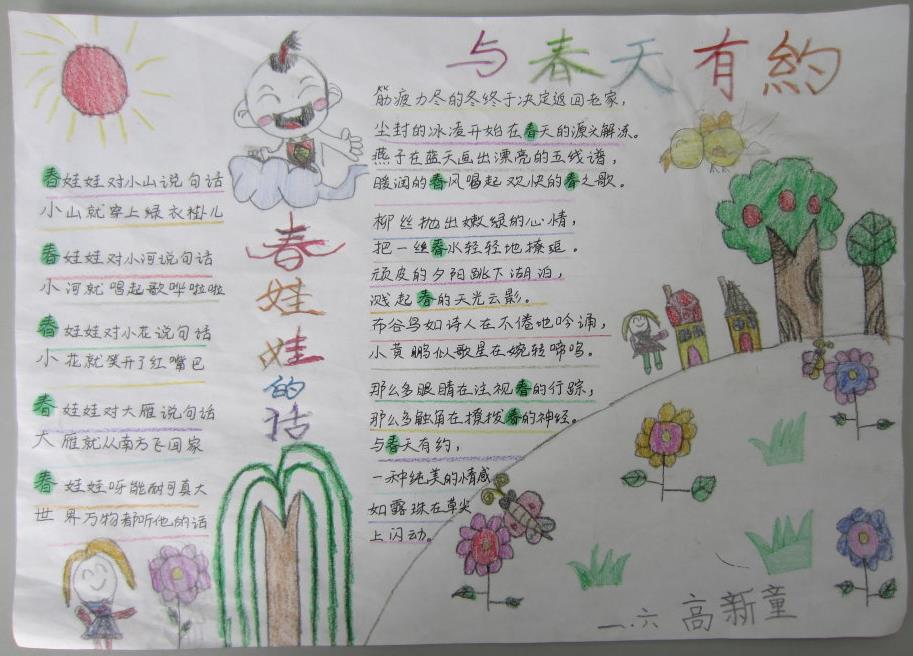 春娃娃的话
春娃娃对小山说句话
小山就穿上绿衣褂儿
春娃娃对小河说句话
小河就唱起歌哗啦啦
春娃娃对小花说句话
小花就笑开了红嘴巴
春娃娃对大雁说句话
大雁就从南方飞回家
春娃娃呀能耐可真大
世界万物都听他的话
与春天有約
筋疲力尽的冬终于决定返回老家，
尘封的冰凌开始在春天的源头解冻。
燕子在蓝天画出漂亮的五线谱，
暖润的春风唱起欢快的春之歌。
柳丝抛出嫩绿的心情，
把一丝春水轻轻地撩逗。
顽皮的夕阳跳下湖泊，
溅起春的天光云影。
布谷鸟如诗人在不倦地吟诵，
小黄鹂似歌星在婉转啼鸣。
那么多眼睛在注视春的行踪，
那么多触角在撩拨春的神经。
与春天有约，
一种纯美的情感
如露珠在草尖
上闪动。
一.六 高新童